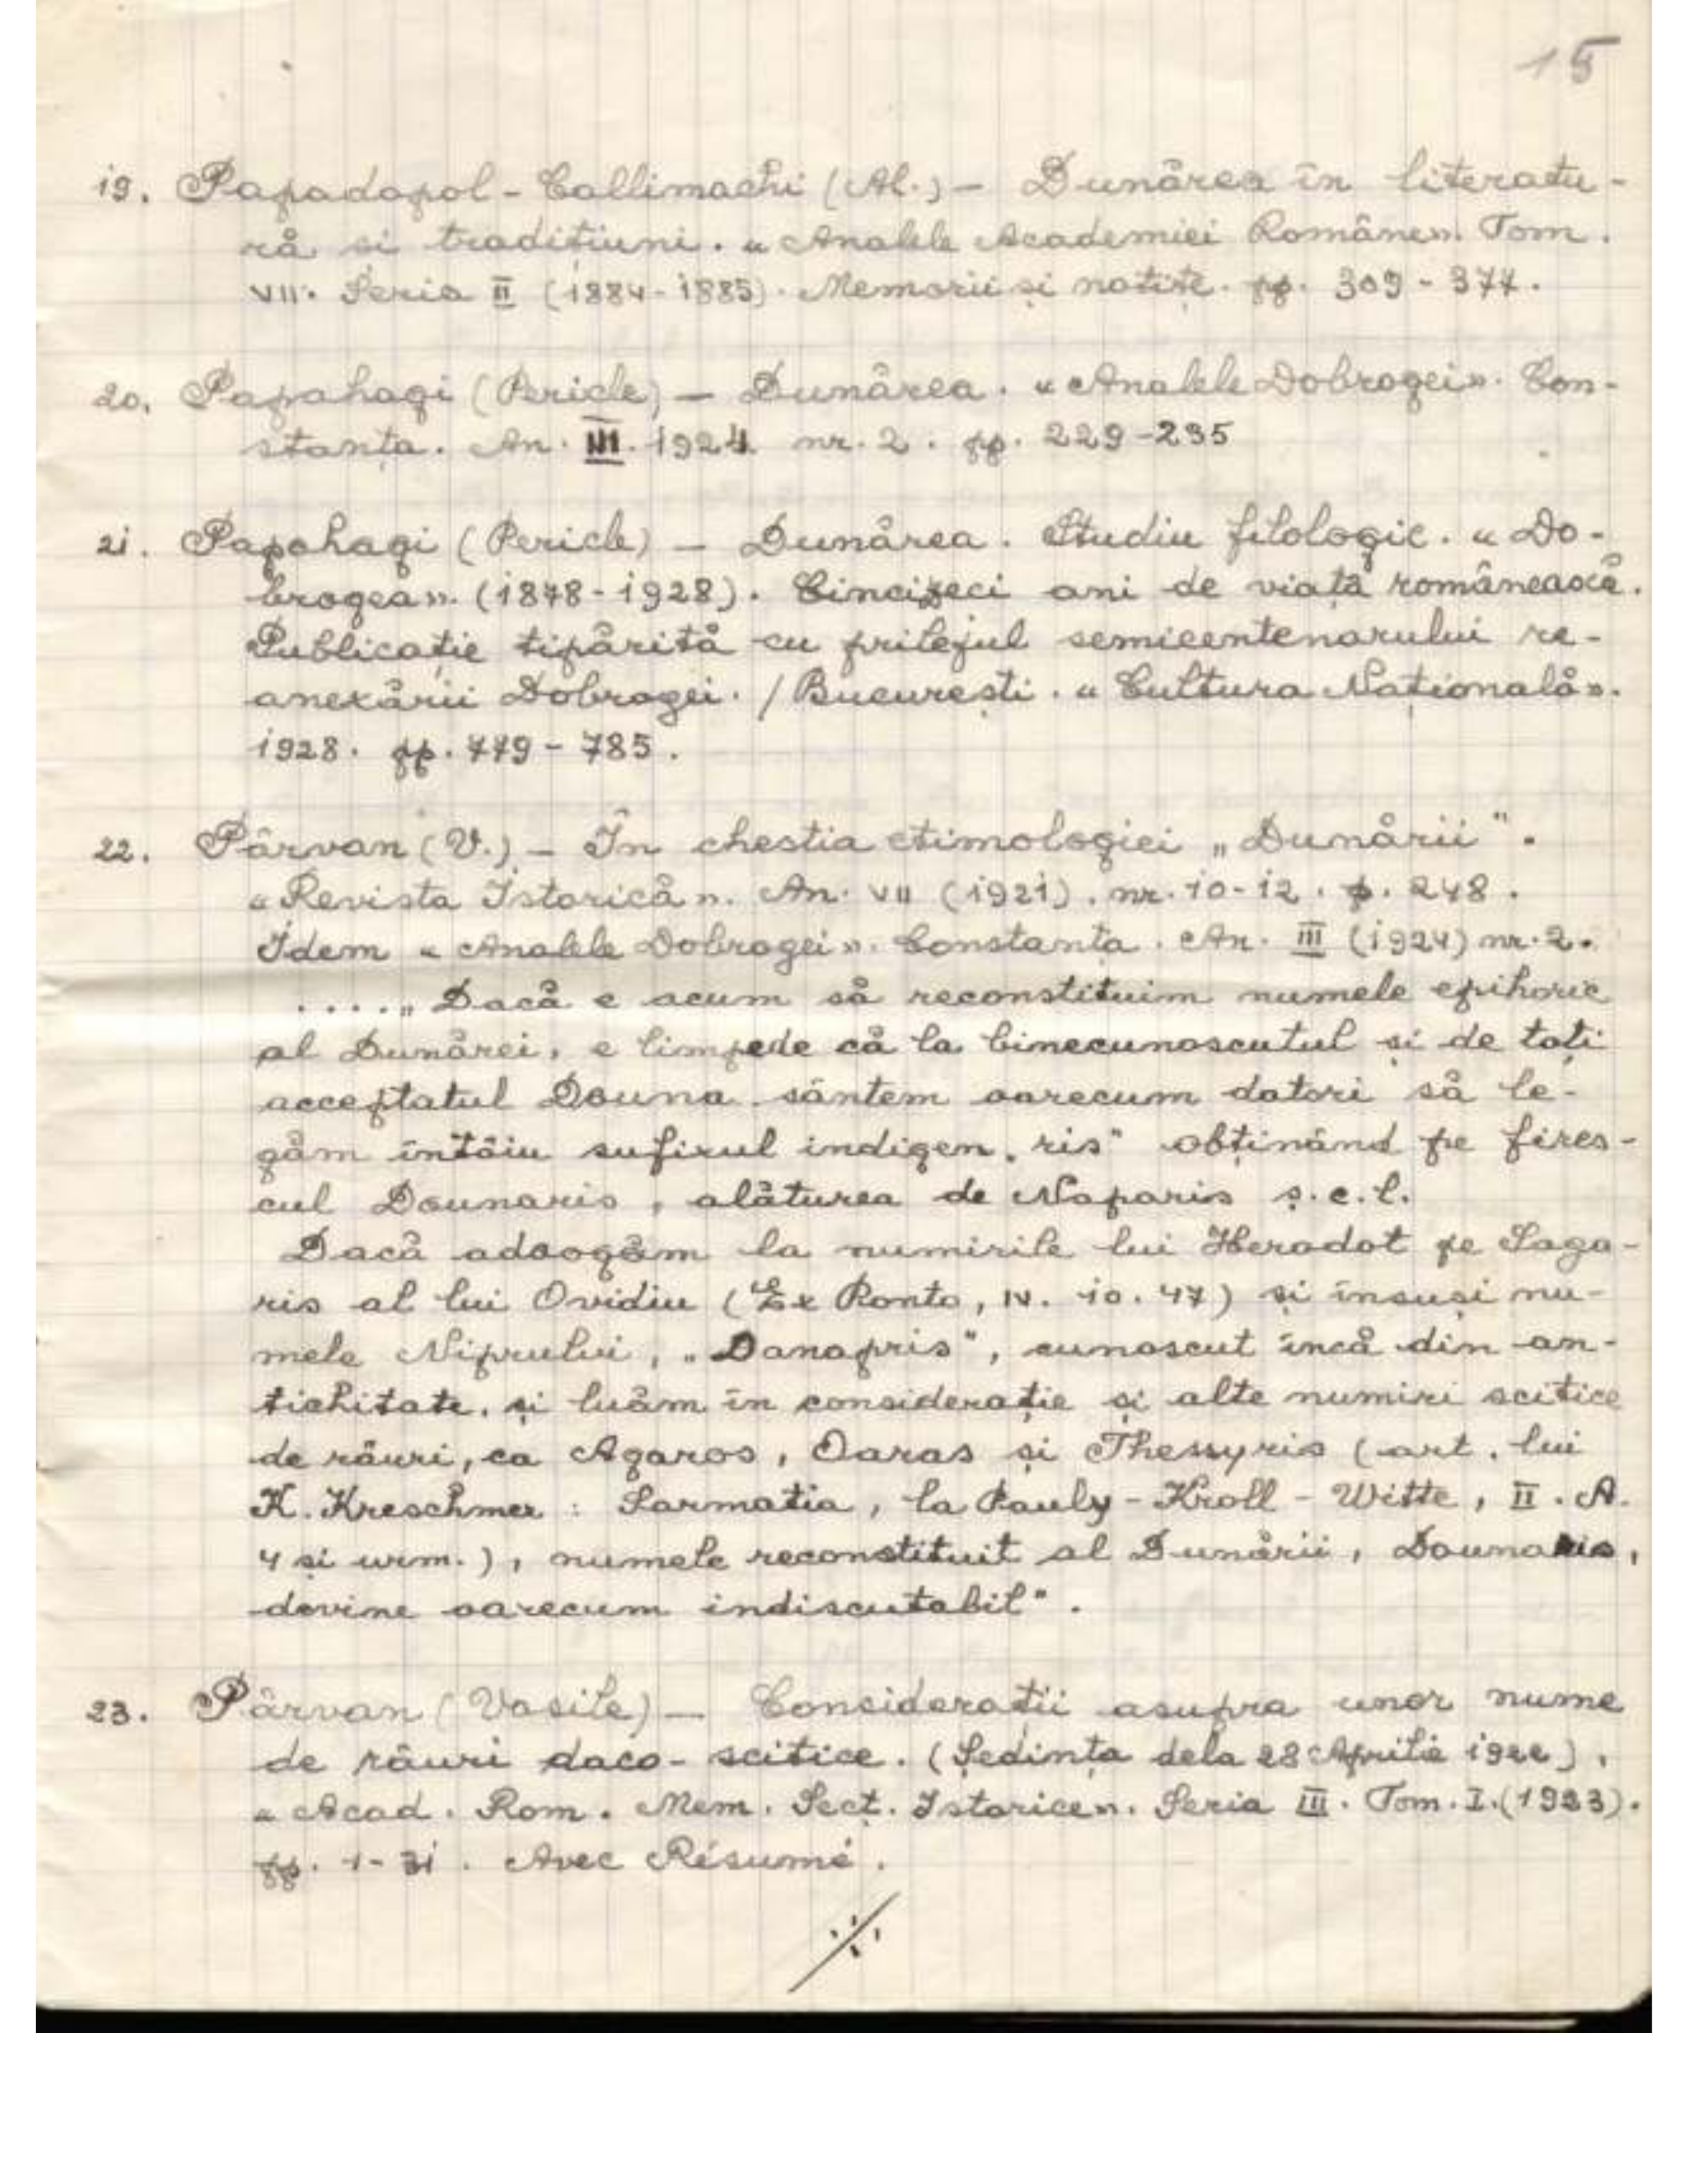 15
19. Papadopol-Callimachi (Al.) – Dunărea în literatu-
ră și tradițiuni. «Analele Academiei Române». Tom.
VII. Seria II (1884-1885). Memorii și notițe. pp. 309-377.
20. Papahagi (Pericle) – Dunărea. «Analele Dobrogei». Con-
stanța. An. III. 1924. nr. 2. pp. 229-235
21. Papahagi (Pericle) – Dunărea. Studiu filologic. «Do-
brogea». (1878-1928). Cincizeci ani de viață românească.
Publicație tipărită cu prilejul semicentenarului re-
anexării Dobrogei. / București. «Cultura Națională».
1928. pp. 779-785.
22. Pârvan (V.) – În chestia etimologiei „Dunării".
«Revista Istorică». An. VII (1921). nr. 10-12. p. 248.
Idem «Analele Dobrogei». Constanța. An. III (1924) nr. 2.
....„Dacă e acum să reconstituim numele epihoric
al Dunărei, e limpede că la binecunoscutul și de toți
acceptatul Douna sântem oarecum datori să le-
găm întâiu sufixul indigen „ris" obținând pe fires-
cul Dounaris, alăturea de Naparis ș.c.l.
Dacă adaogăm la numirile lui Herodot pe Saga-
ris al lui Ovidiu (Ex Ponto, IV. 10. 47) și însuși nu-
mele Niprului, „Danapris", cunoscut încă din an-
tichitate, și luăm în considerație și alte numiri scitice
de râuri, ca Agaros, Oaras și Thessyris (art. lui
K. Kreschmer : Sarmatia, la Pauly-Kroll-Witte, II. A.
4 și urm.), numele reconstituit al Dunării, Dounaris,
devine oarecum indiscutabil".
23. Pârvan (Vasile) – Considerații asupra unor nume
de râuri daco-scitice. (Ședința dela 28 Aprilie 1922).
«Acad. Rom. Mem. Secț. Istorice». Seria III. Tom. I. (1923).
pp. 1-31. Avec Résumé.